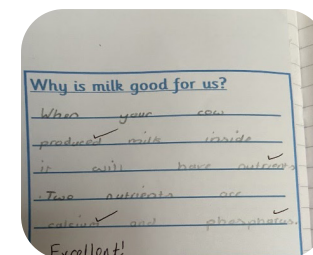 Why is milk good for us?
When your cow
produced milk inside
it will have nutrients
. Two nutrients are
calcium and phosphorus.
Excellent!